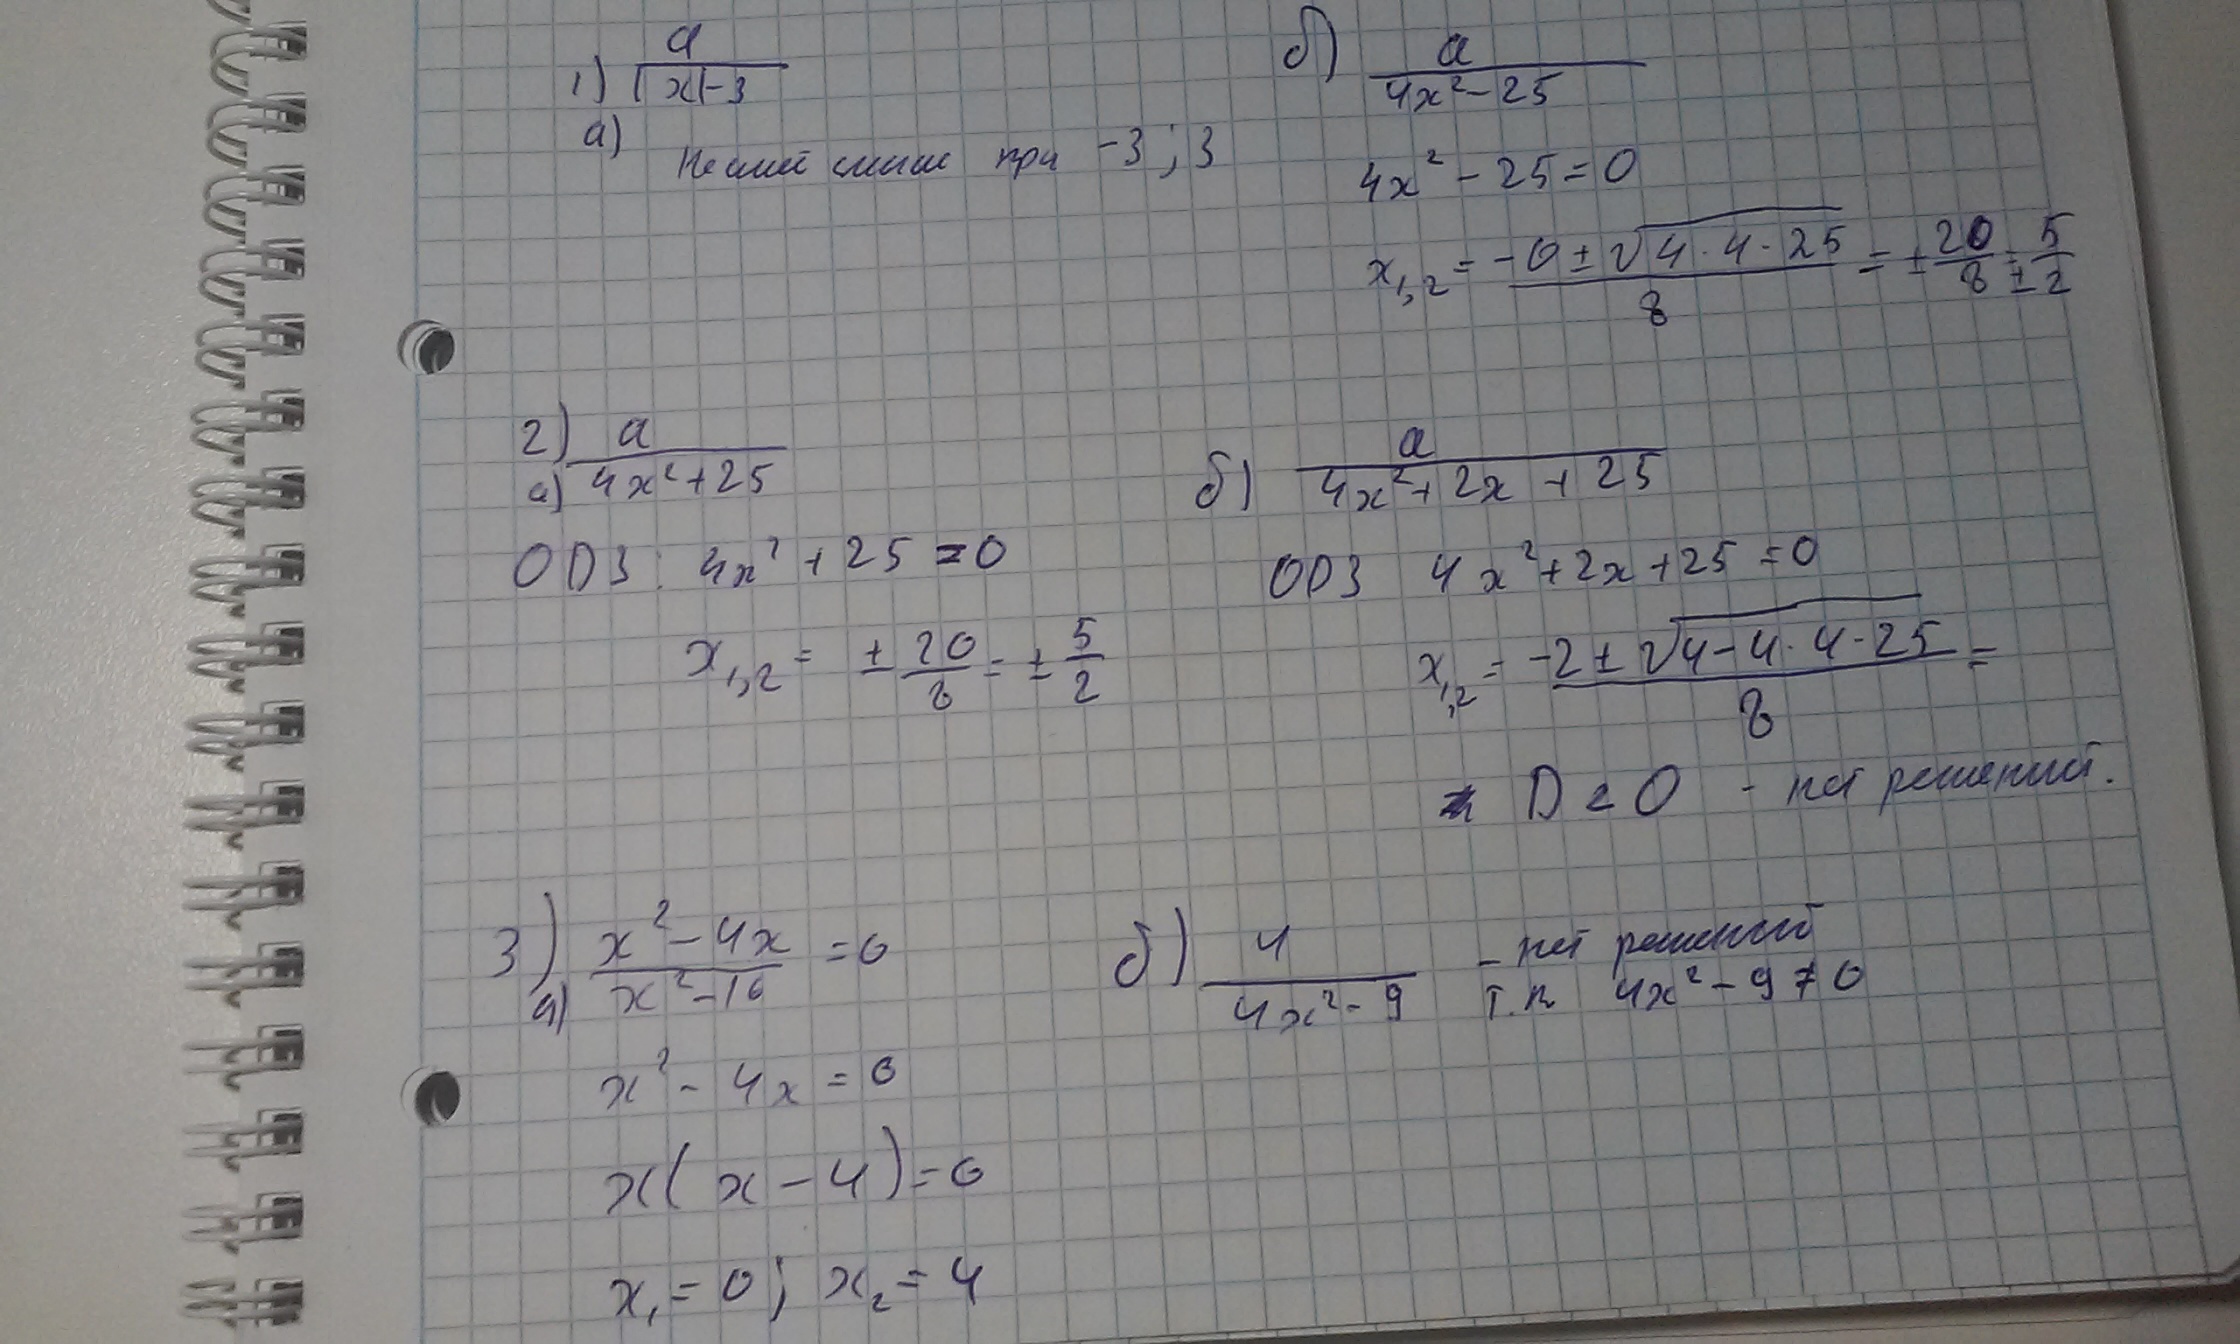 1) a
а) |x|-3
не имеет смысл при -3; 3
б) a
4x²-25
4x²-25=0
x₁,₂ = -0±√4·4·25 / 8 = ±20/8 = ±5/2
2) a
а) 4x²+25
ОДЗ: 4x²+25=0
x₁,₂ = ±20/8 = ±5/2
б) a
4x²+2x+25
ОДЗ 4x²+2x+25=0
x₁,₂ = -2±√4-4·4·25 / 8 =
D<0 - нет решений.
3) x²-4x
а) x²-16 =0
x²-4x=0
x(x-4)=0
x₁=0; x₂=4
б) 4 - нет решений
4x²-9 т.к 4x²-9≠0